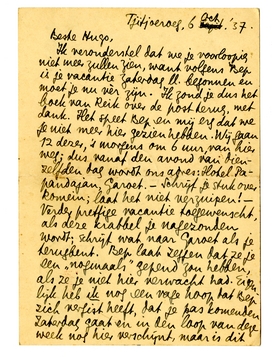 Tjitjoeroeg, 6 Oct. '37.
Beste Hugo,
Ik veronderstel dat we je voorloopig
niet meer zullen zien, want volgens Bep
is je vacantie Zaterdag ll. begonnen en
moet je nu hier zijn. Ik zond je dus het
boek van Reik over de post terug, met
dank. Het speet Bep en mij erg dat we
je niet meer hier gezien hebben. Wij gaan
12 dezer, 's morgens om 6 uur, van hier
weg, dus vanaf den avond van dien-
zelfden dag wordt ons adres: Hotel Pa-
pandajan, Garoet. – Schrijf je stuk over
Komein; laat het niet verzuipen! –
Verder prettige vacantie toegewenscht,
als deze krabbel je nagezonden
wordt; schrijf wat naar Garoet als je
terugbent. Bep laat zeggen dat ze je
een "nogmaals" gepend zou hebben,
als ze je niet hier verwacht had. Eigen
lijk heb ik nog een vage hoop, dat Bep
zich vergist heeft, dat je pas komenden
Zaterdag gaat en in den loop van deze
week nog hier verschijnt, maar is dit